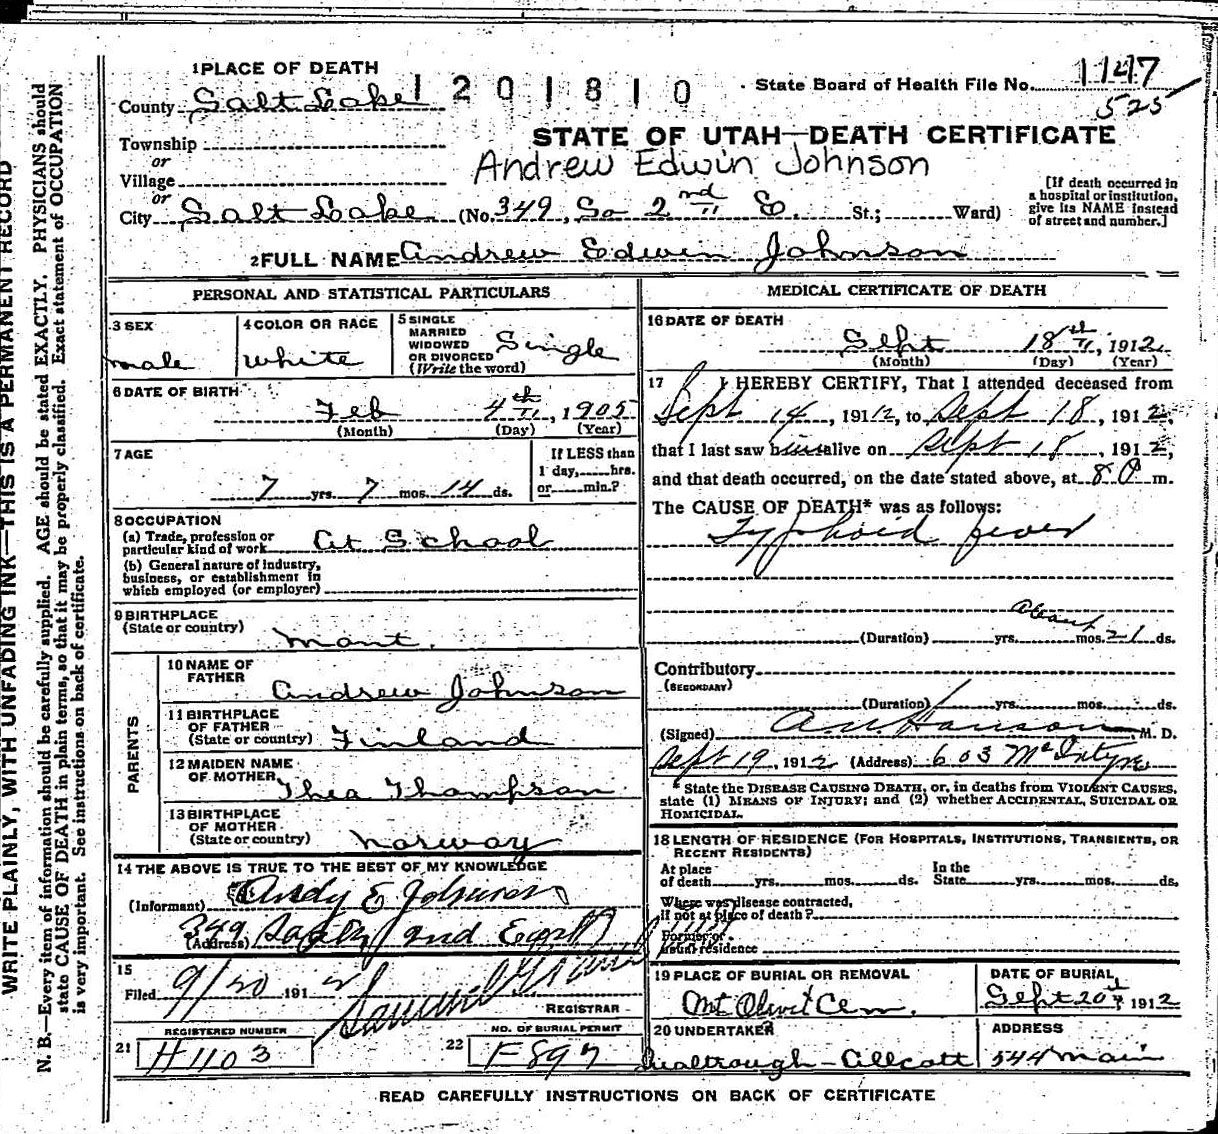 1 PLACE OF DEATH
County Salt Lake
1201810
State Board of Health File No. 1147
525
STATE OF UTAH—DEATH CERTIFICATE
Township
or
Village
or
Andrew Edwin Johnson
City Salt Lake (No. 349, So 2nd E. St.; Ward)
[If death occurred in
a hospital or institution,
give its NAME instead
of street and number.]
2 FULL NAME Andrew Edwin Johnson
PERSONAL AND STATISTICAL PARTICULARS
3 SEX
male
4 COLOR OR RACE
white
5 SINGLE
MARRIED
WIDOWED
OR DIVORCED
(Write the word)
Single
6 DATE OF BIRTH
Feb 4th, 1905
(Month) (Day) (Year)
7 AGE
7 yrs. 7 mos. 14 ds.
If LESS than
1 day, hrs.
or min.?
8 OCCUPATION
(a) Trade, profession or
particular kind of work At School
(b) General nature of industry,
business, or establishment in
which employed (or employer)
9 BIRTHPLACE
(State or country)
Mont.
PARENTS
10 NAME OF
FATHER
Andrew Johnson
11 BIRTHPLACE
OF FATHER
(State or country) Finland
12 MAIDEN NAME
OF MOTHER
Thea Thompson
13 BIRTHPLACE
OF MOTHER
(State or country) Norway
14 THE ABOVE IS TRUE TO THE BEST OF MY KNOWLEDGE
(Informant) Andy E Johnson
349
(Address) 2nd East
15
Filed 9/20 1912
REGISTRAR
REGISTERED NUMBER
21 H1103
NO. OF BURIAL PERMIT
22 F897
MEDICAL CERTIFICATE OF DEATH
16 DATE OF DEATH
Sept 18th, 1912
(Month) (Day) (Year)
17 I HEREBY CERTIFY, That I attended deceased from
Sept 14, 1912, to Sept 18, 1912,
that I last saw him alive on Sept 18, 1912,
and that death occurred, on the date stated above, at 8 P m.
The CAUSE OF DEATH* was as follows:
Typhoid fever
about
(Duration) yrs. mos. 21 ds.
Contributory
(SECONDARY)
(Duration) yrs. mos. ds.
(Signed) M. D.
Sept 19, 1912 (Address) 603 McIntyre
* State the DISEASE CAUSING DEATH, or, in deaths from VIOLENT CAUSES,
state (1) MEANS OF INJURY; and (2) whether ACCIDENTAL, SUICIDAL OR
HOMICIDAL.
18 LENGTH OF RESIDENCE (FOR HOSPITALS, INSTITUTIONS, TRANSIENTS, OR
RECENT RESIDENTS)
At place
of death yrs. mos. ds.
In the
State yrs. mos. ds.
Where was disease contracted,
if not at place of death?
Former or
usual residence
19 PLACE OF BURIAL OR REMOVAL
Mt Olivet Cem.
DATE OF BURIAL
Sept 20th, 1912
20 UNDERTAKER
ADDRESS
544 Main
READ CAREFULLY INSTRUCTIONS ON BACK OF CERTIFICATE
WRITE PLAINLY, WITH UNFADING INK—THIS IS A PERMANENT RECORD
N. B.—Every item of information should be carefully supplied. AGE should be stated EXACTLY. PHYSICIANS should
state CAUSE OF DEATH in plain terms, so that it may be properly classified. Exact statement of OCCUPATION
is very important. See instructions on back of certificate.